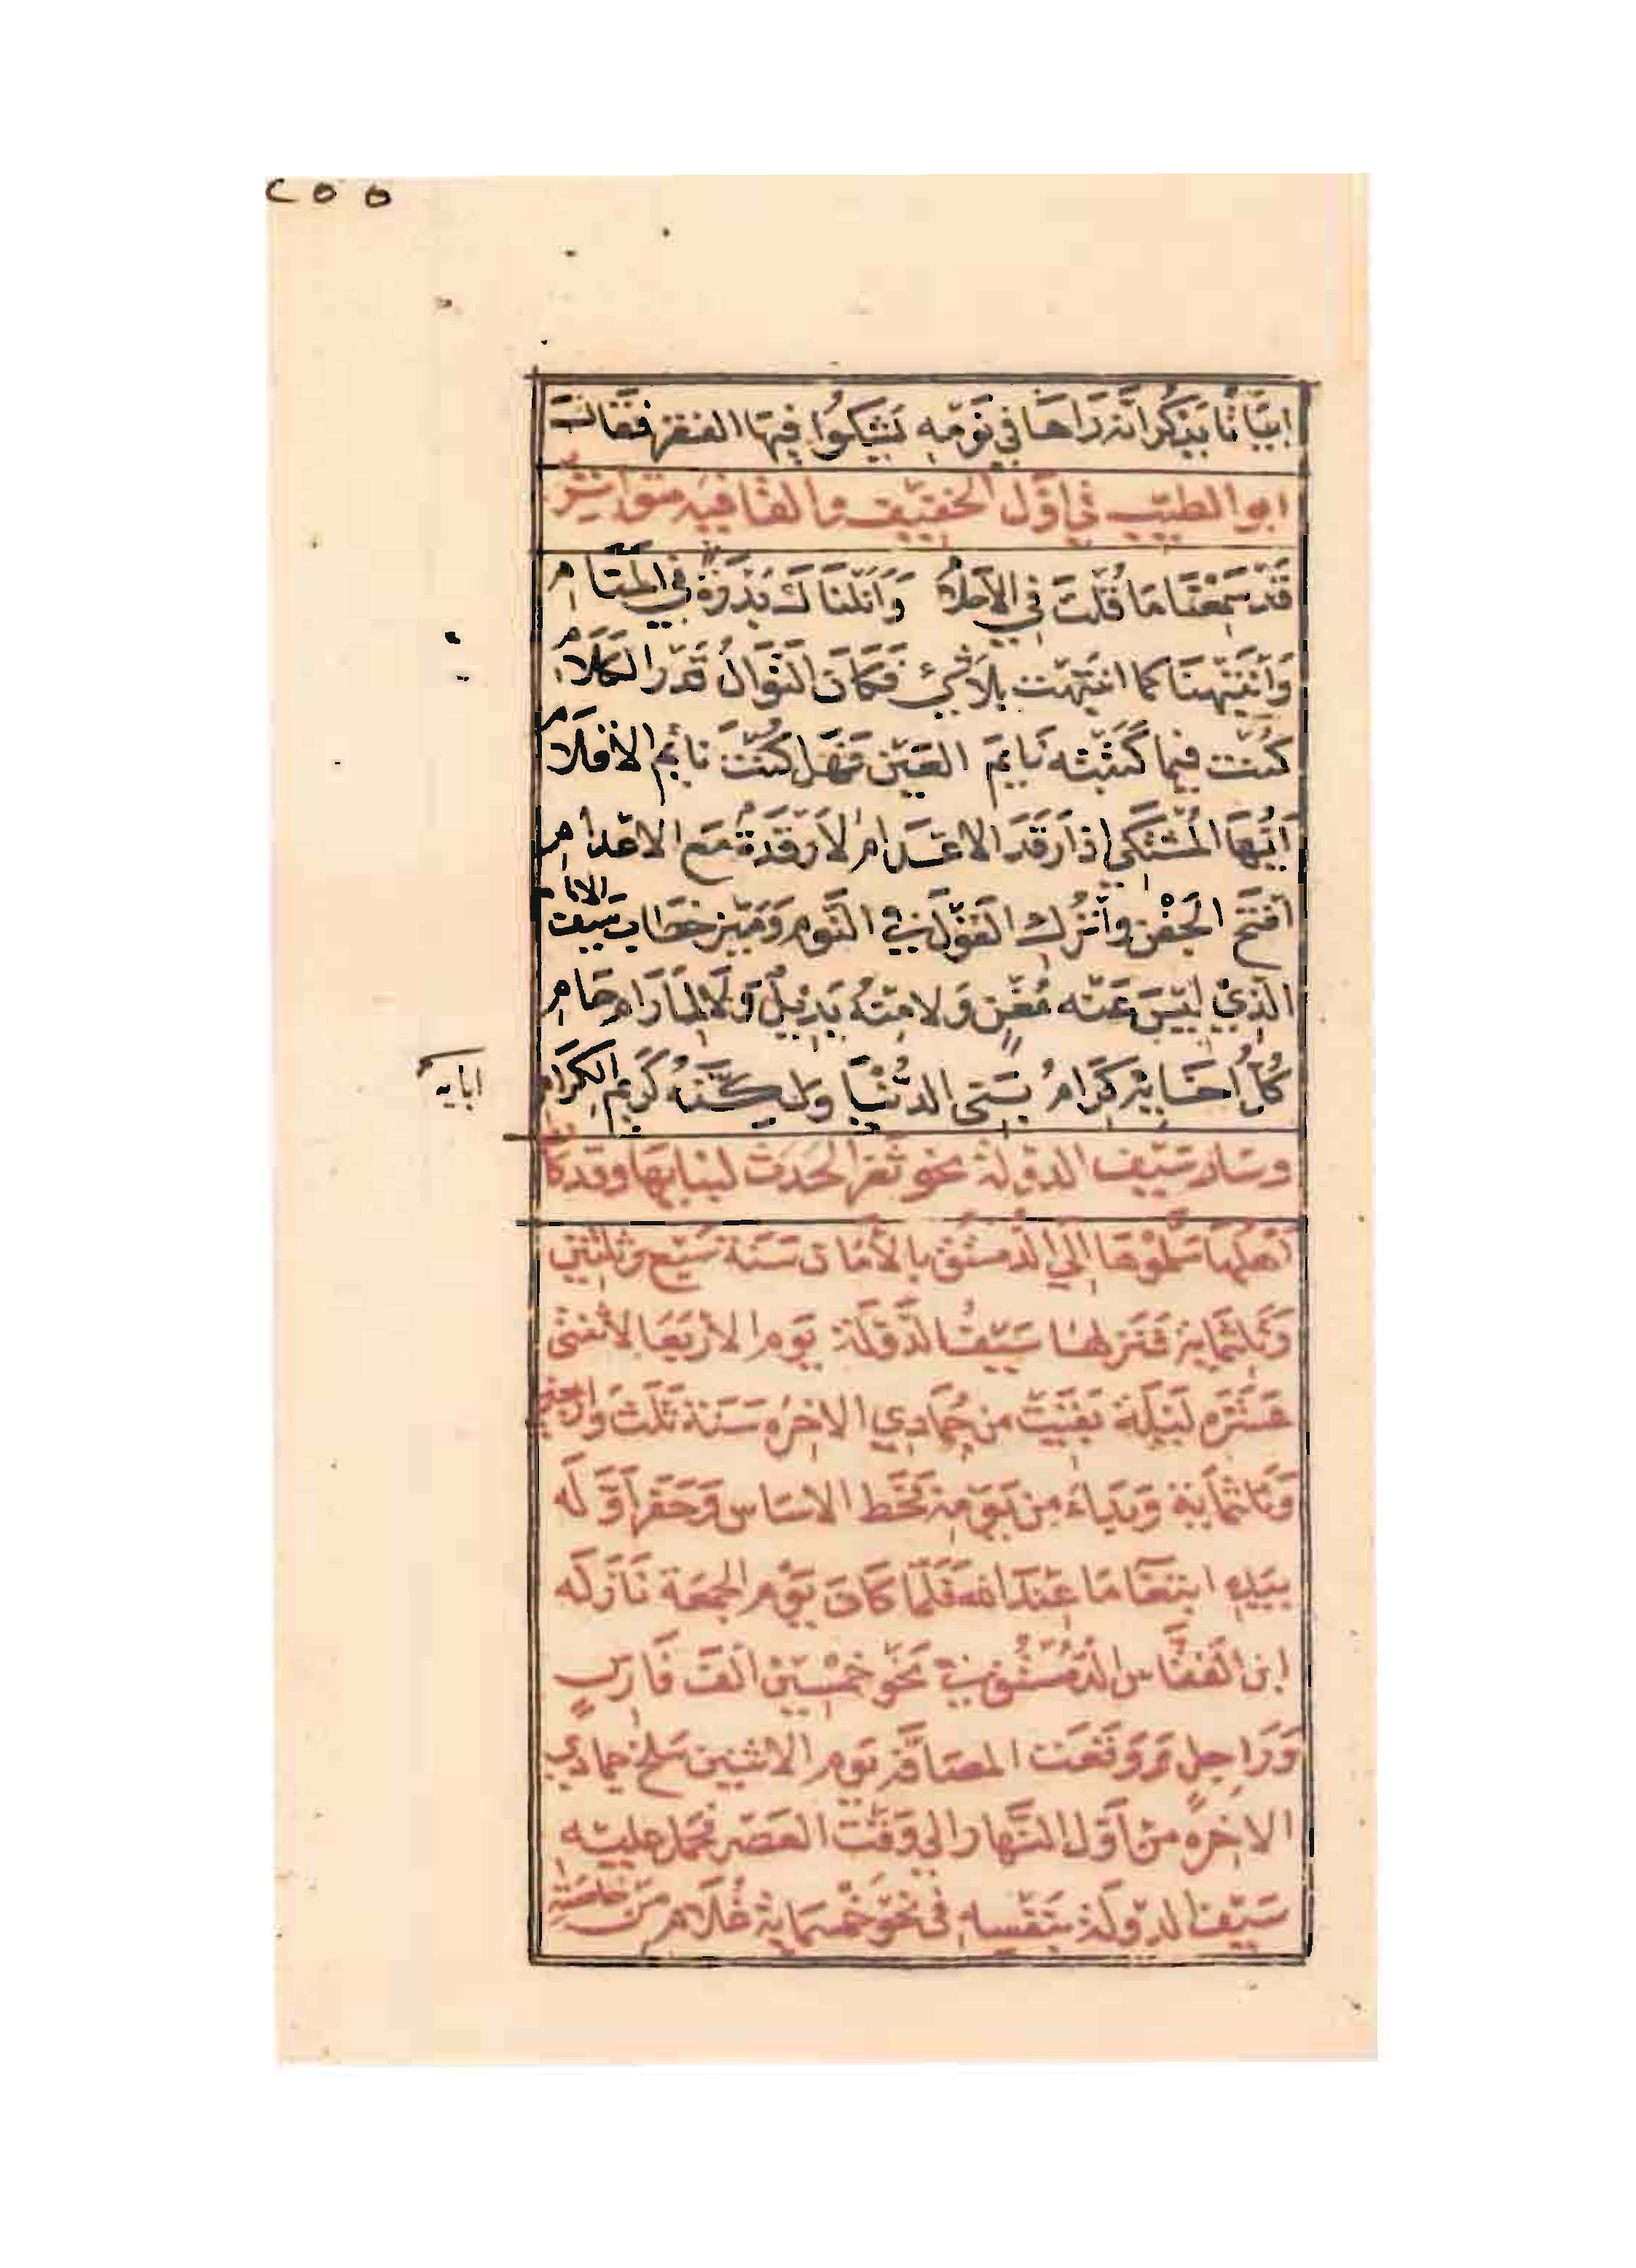 ٢٥٥
ابيَاتًا يَذكُر انّه رَاهَا في نَوْمِه يَشِكوُا فيهَا الفقر فقَالَ
ابو الطيّب في اوّل الخفيف والقافيَه متواتِرٌ
قَدْ سَمِعْنَا مَا قُلْتَ في الاَحلامِ وَاَنَلنَاكَ بَدْرَةً في المَنَامِ
وَاَنْتَبَهْنَا كما انتبَهْتَ بِلاَ شيْءٍ فَكَانَ النّوَالُ قَدْرَ الكَلاَمِ
كُنْتَ فيما كَتَبْتَه نَايمَ العَيْن فَهَل كُنْتَ نائِم الاقلاَمِ
اَيُّهَا المُشْتَكي اذَا رَقَدَ الاعْدَامَ لاَ رَقْدَةٌ مَعَ الاعْدَامِ
افتَح الجَفْنَ واتْرُك القَوْلَ في النّوم وَمَيّز خطَابَ سَيْف الانَامِ
الّذي لَيْسَ عَنْه مُغْنٍ وَلا مِنْهُ بَدِيْلٌ وَلاَ لِمَا رَامَ حَامِ
كُلُّ اخَايِه كِرَامُ بَني الدّنْيَا وَلكِنّهُ كَريم الكِرَامِ
ابايه
وسَار سَيْف الدوْلة نحو ثغر الحَدَث لبنايهَا وقد كَانَ
اَهْلهَا سَلّموْهَا اِلي الدّمسْتق بالأمَان سَنَة سَبْع وثلثين
وَثلثمَاية فَنَزلهَا سَيْفُ الدّوْلَة يَوم الاَرْبَعَا لاثنتى
عَشْرَه لَيْلَة بَقِيَتْ من جُمَادِي الاخِرَه سَنَة ثَلَث وَاربَعين
وَثلثمايَة وَبَداءَ مِن يَوْمِه فَخَط الاسَاس وَحَفر اَوّلَه
بيَدِهِ ابتغَا مَا عِنْدَ الله فَلَمّا كَانَ يَوْم الجمعَة نَازَلَه
ابن الفقّاس الدّمُسْتُق في نَحْو خَمْسِين الفَ فَارِسٍ
وَرَاجِلٍ وَوَقَعَت المصَافّة يَوم الاثنين سَلخ جمادي
الاخِرَه من اَوّل النّهار الي وَقْت العَصْر فحمَل عليْه
سَيْف الدوْلَة بنَفْسِهِ في نَحْو خَمْسمَاية غُلاَمٍ مِنْ خَاصّتِه